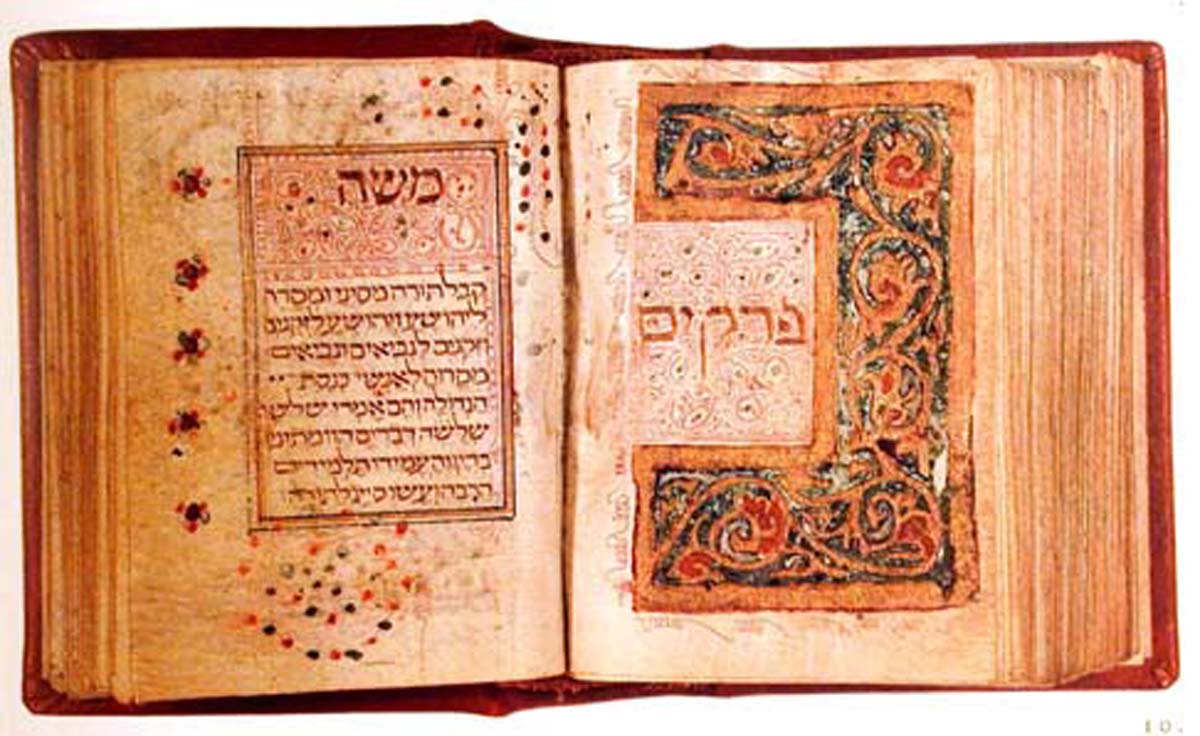 פרקים
משה
קבל תורה מסיני ומסרה
ליהושע ויהושע לזקנים
וזקנים לנביאים ונביאים
מסרוה לאנשי כנסת
הגדולה והם אמרו
שלשה דברים הוו
בדין והעמידו תלמידים
הרבה ועשו סייג לתורה
10.